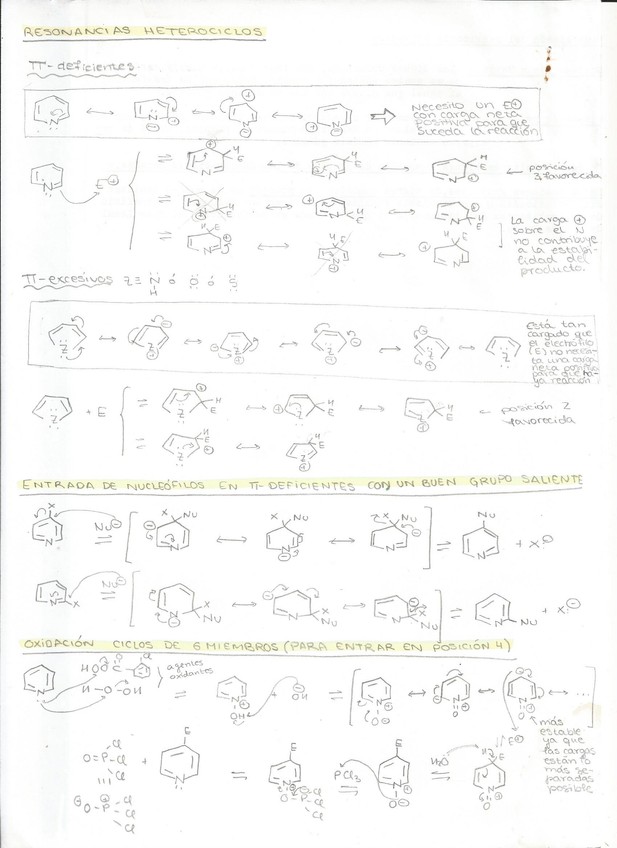 RESONANCIAS HETEROCICLOS
π-deficientes
Necesito un E⊕
con carga neta
positiva para que
suceda la reacción
E⊕
posición
3 favorecida
La carga ⊕
sobre el N
no contribuye
a la estabi-
lidad del
producto.
π-excesivos Z ≡ N ó O ó S
H
Está tan
cargado que
el electrófilo
(E) no necesi-
ta una carga
neta positiva
para que ha-
ya reacción
+ E
posición 2
favorecida
ENTRADA DE NUCLEÓFILOS EN π-DEFICIENTES CON UN BUEN GRUPO SALIENTE
Nu⊖
+ X:⊖
Nu⊖
+ X:⊖
OXIDACIÓN CICLOS DE 6 MIEMBROS (PARA ENTRAR EN POSICIÓN 4)
agentes
oxidantes
H-O-OH
+ OH
más
estable
ya que
las cargas
están lo
más se-
paradas
posible
PCl3
H2O